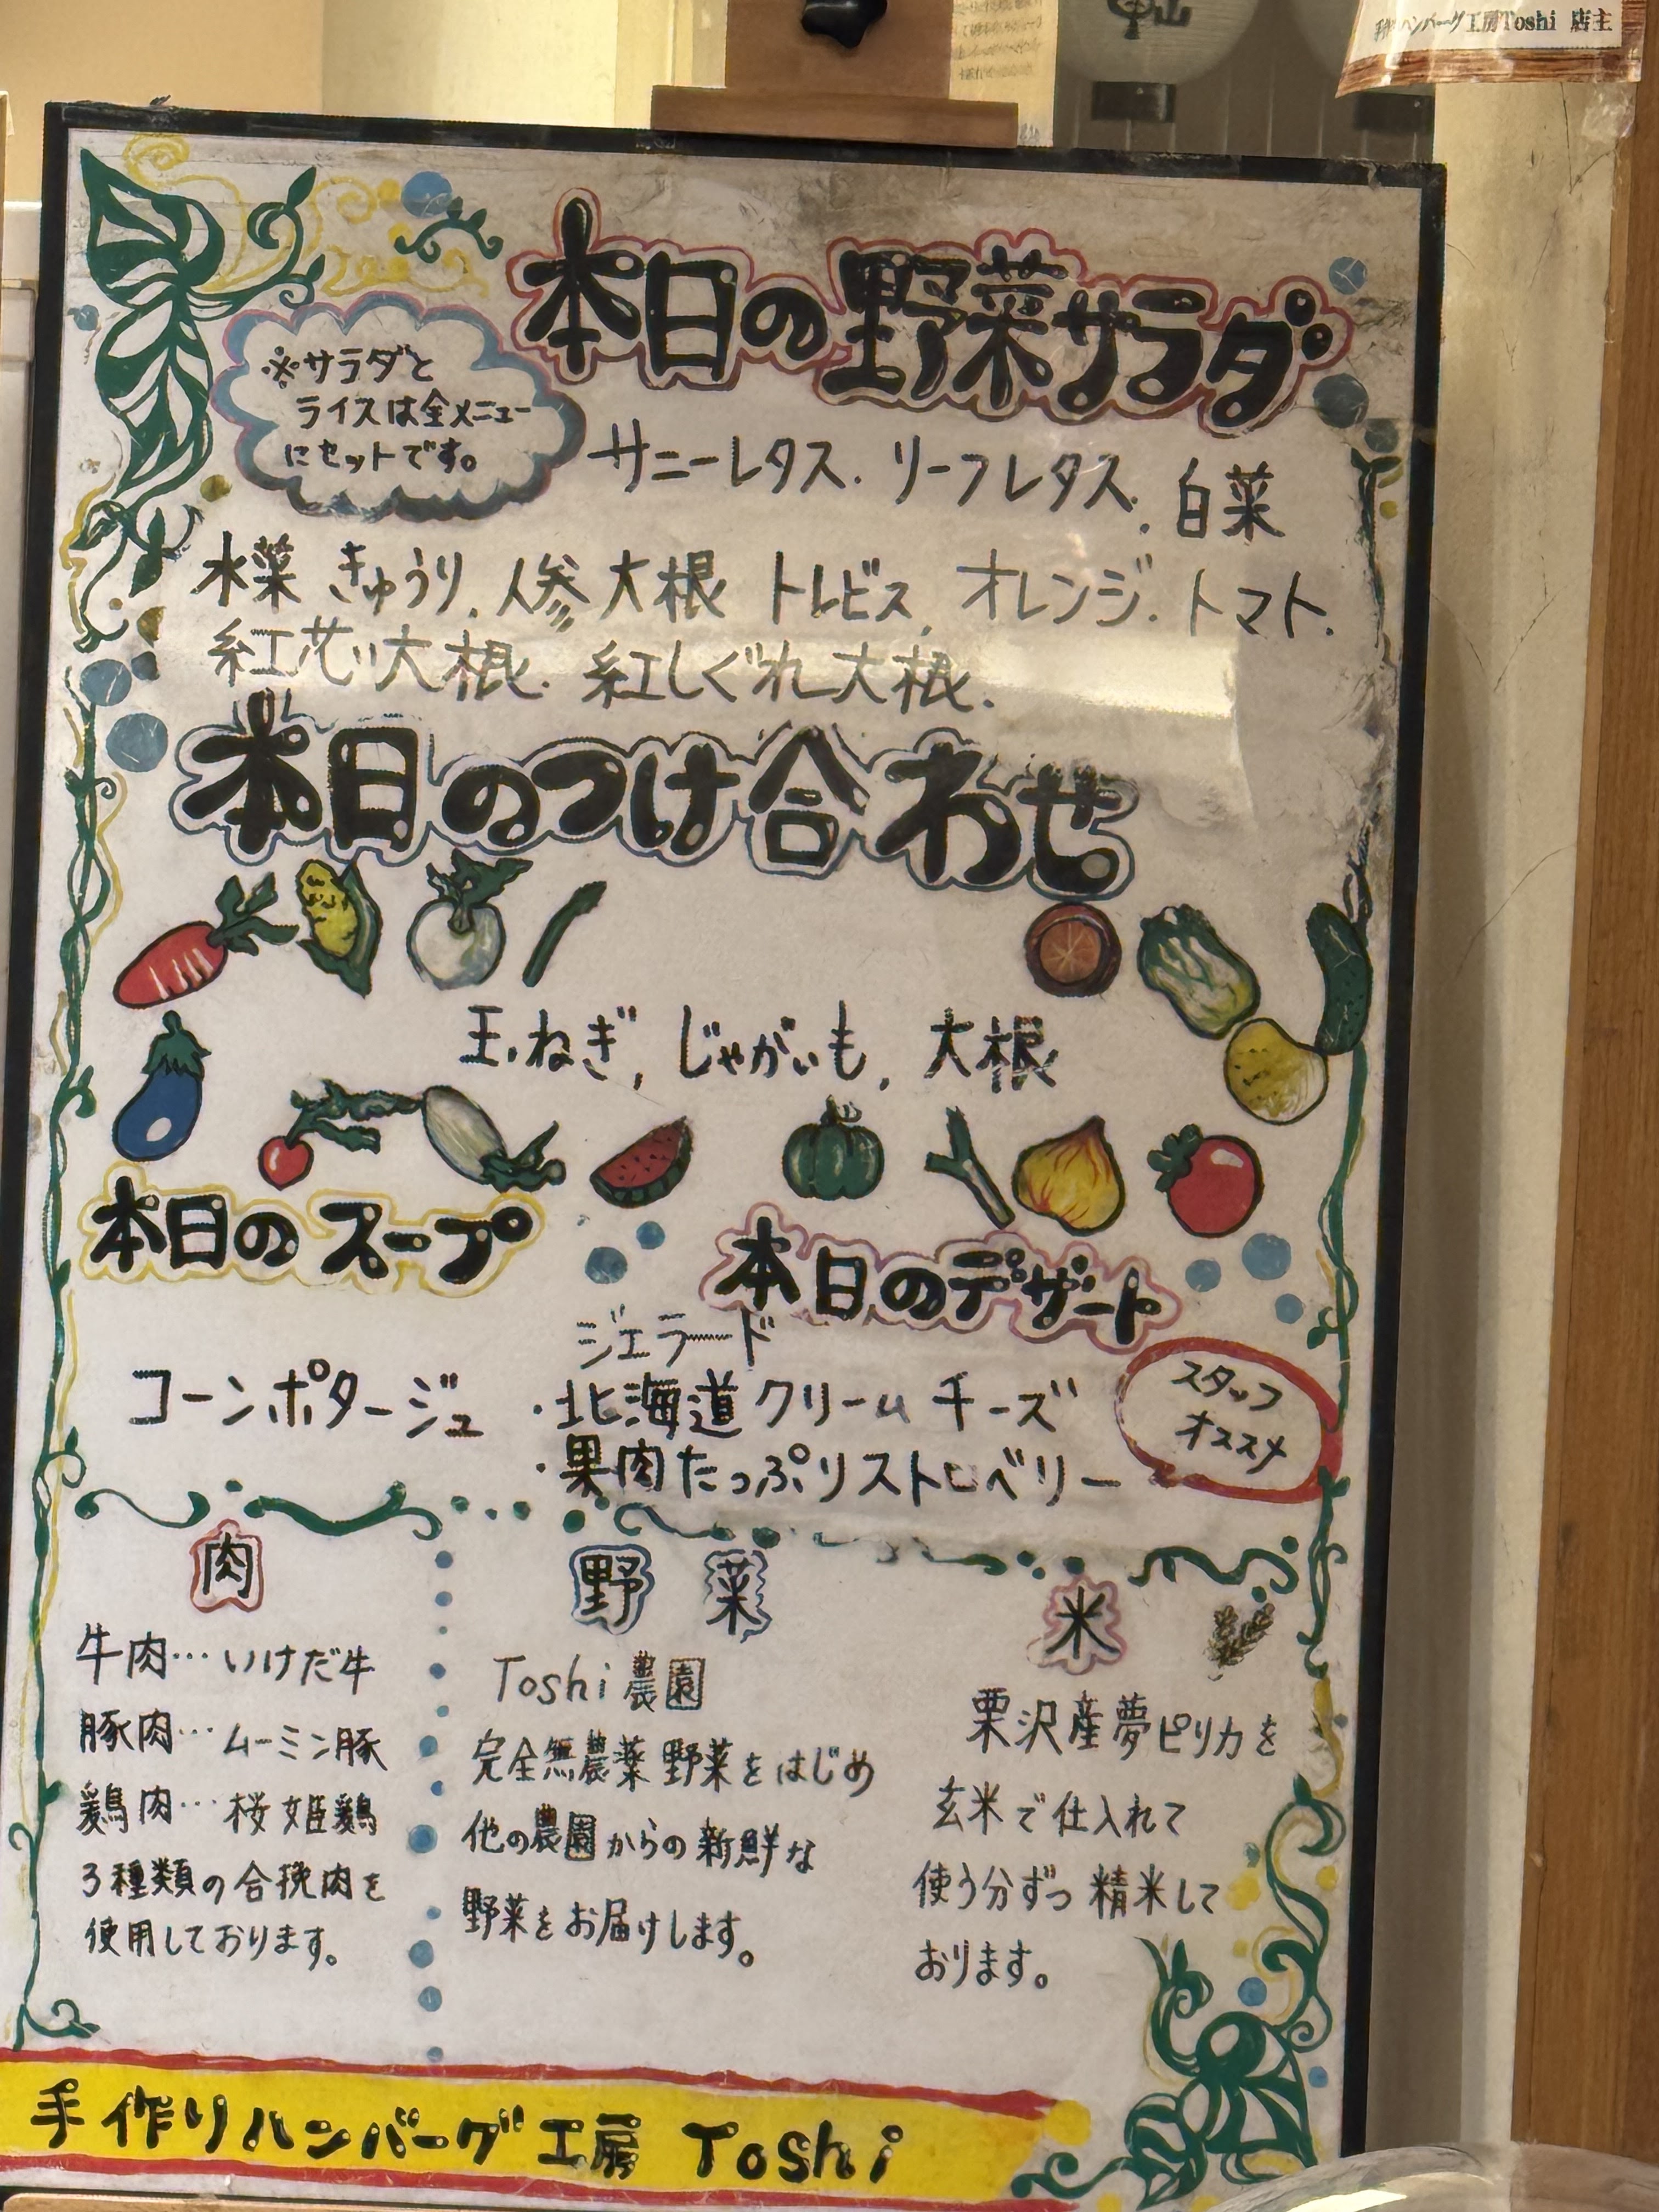 手作ハンバーグ工房Toshi 店主
本日の野菜サラダ
※サラダと
ライスは全メニュー
にセットです。
サニーレタス. リーフレタス. 白菜
水菜 きゅうり. 人参 大根 トレビス, オレンジ. トマト.
紅芯大根. 紅しぐれ大根.
本日のつけ合わせ
玉ねぎ, じゃがいも, 大根
本日のスープ
コーンポタージュ
本日のデザート
ジェラード
・北海道クリームチーズ
・果肉たっぷりストロベリー
スタッフ
オススメ
肉
牛肉…いけだ牛
豚肉…ムーミン豚
鶏肉…桜姫鶏
3種類の合挽肉を
使用しております。
野菜
Toshi農園
完全無農薬野菜をはじめ
他の農園からの新鮮な
野菜をお届けします。
米
栗沢産夢ピリカを
玄米で仕入れて
使う分ずつ精米して
おります。
手作りハンバーグ工房 Toshi